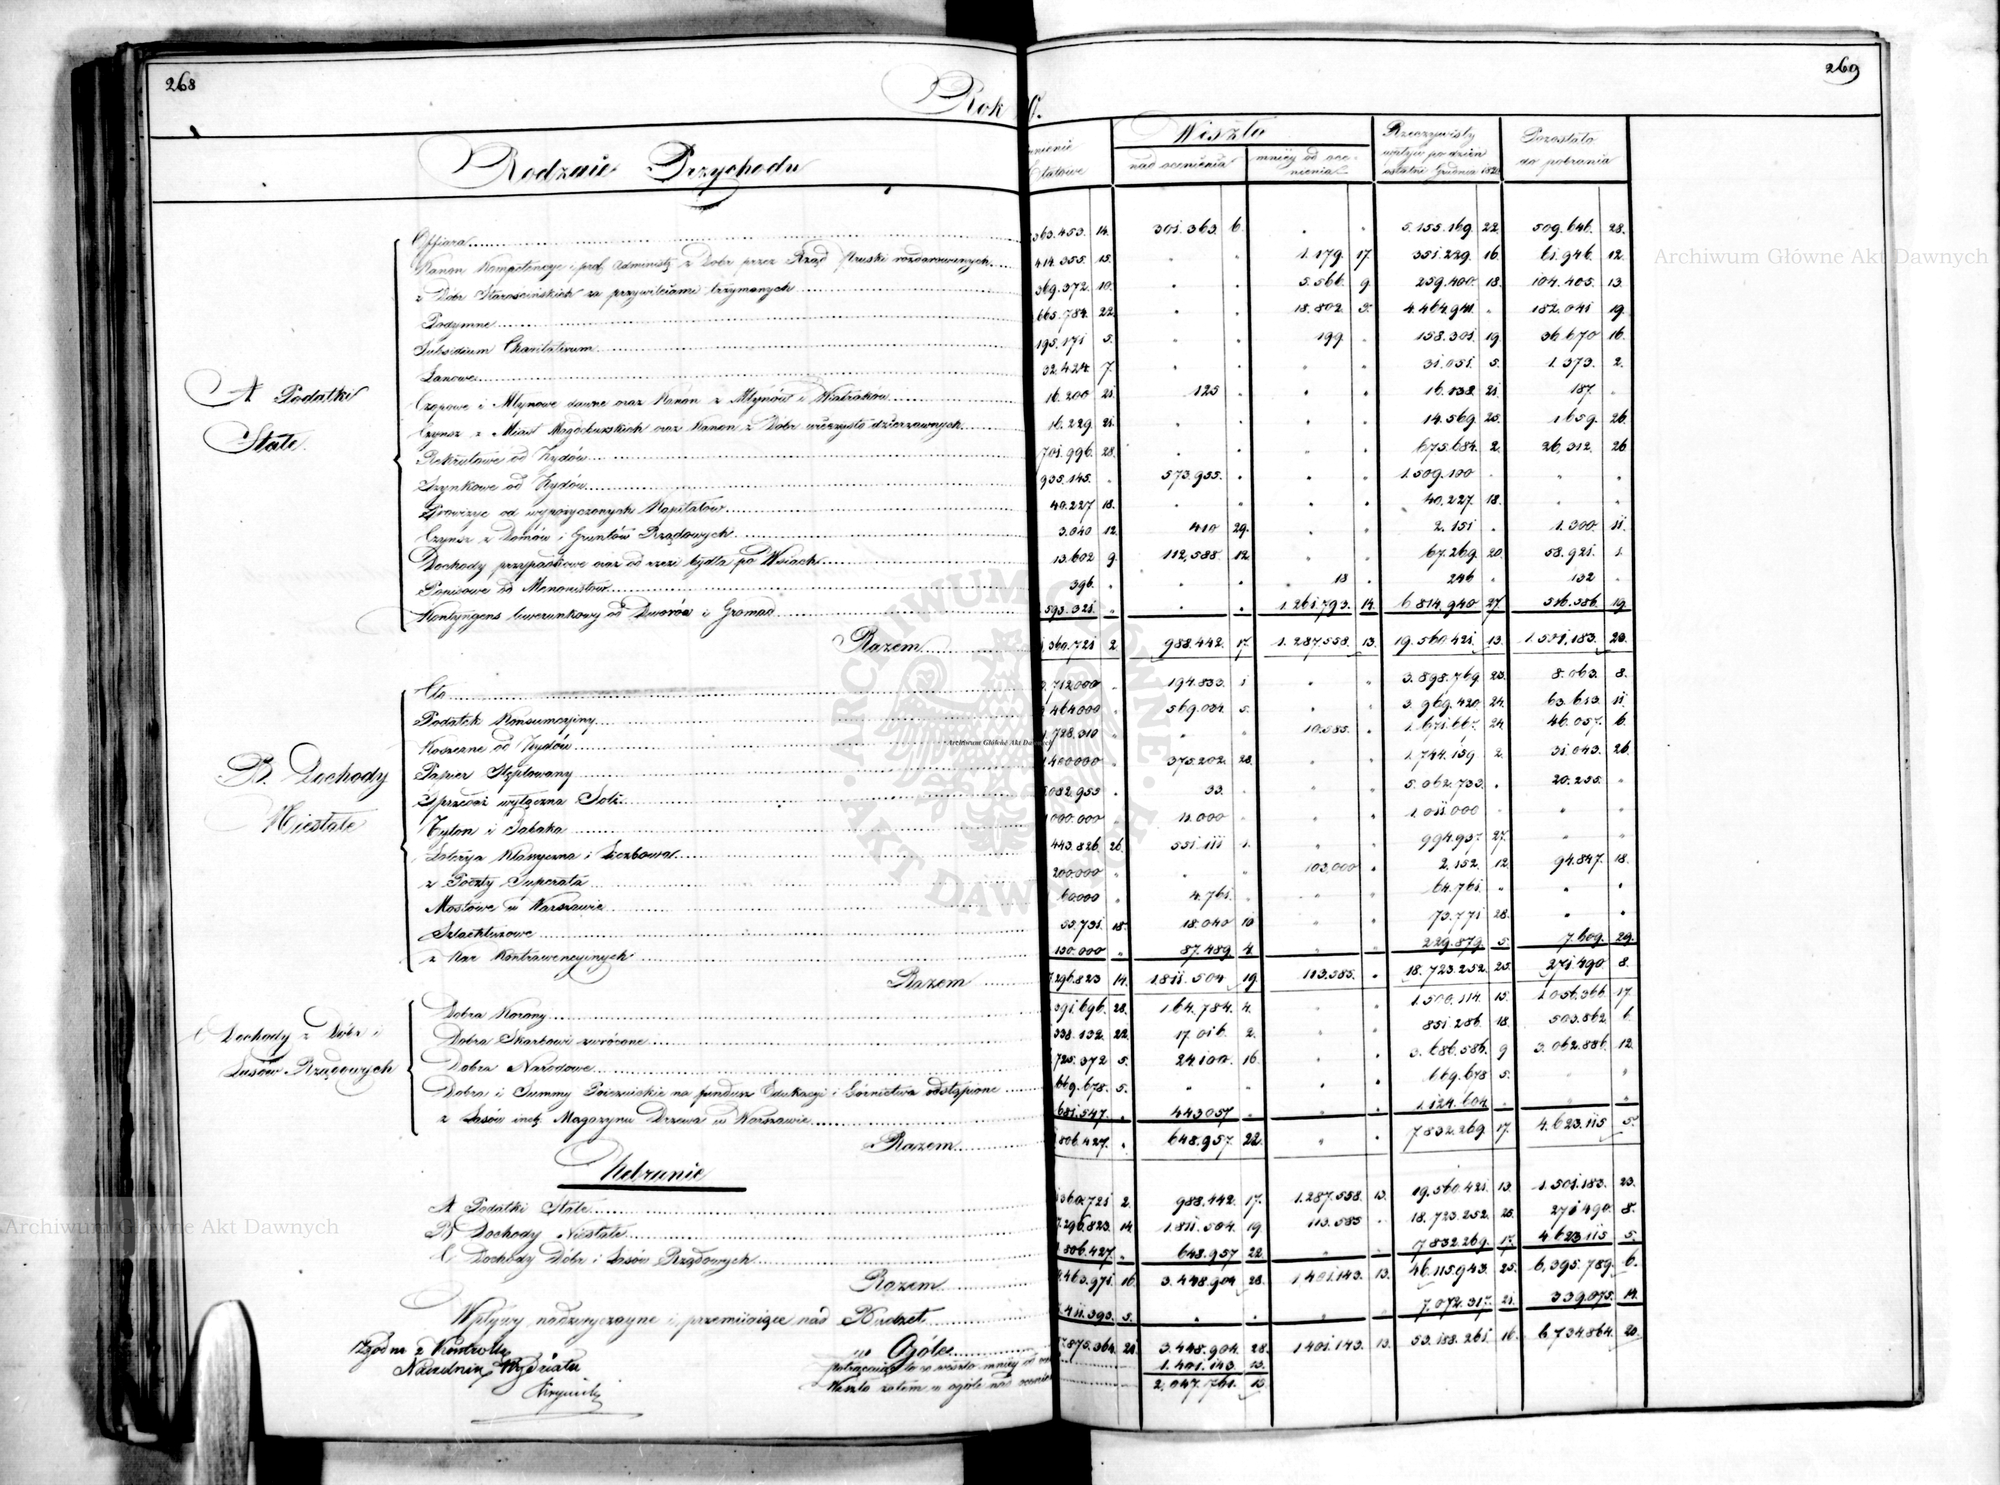 268
269
Rok
0.
Rodzaie Przychodu
Etatowe
Weszło
nad ocenienia
mniey od oce-
nienia
Rzeczywisty
wpływ po dzień
ostatni Grudnia 182
Pozostało
do pobrania
A Podatki
Stałe.
Offiara 363.453. 14. 301.363. 6. " " 5.155.169. 22. 509.646. 28.
Kanon Kompetencye i prof. Administ. z Dobr przez Rząd Pruski rozdarowanych 414.355. 15. " " 1.179. 17. 351.229. 16. 61.946. 12.
z Dóbr Starościńskich za przywileiami trzymanych 369.372. 10. " " 5.566. 9. 259.400. 18. 104.405. 13.
Podymne 665.784. 22. " " 18.802. 3. 4.464.941. " 182.041 19.
Subsidium Charitativum 195.171 5. " " 199 " 158.301. 19. 36.670 16.
Łanowe 32.424. 7. " " " " 31.051. 5. 1.373. 2.
Czopowe i Młynowe dawne oraz Kanon z Młynów i Wiatraków 16.200 21. 125 " " " 16.138. 21. 187. "
Czynsz z Miast Magdeburskich oraz Kanon z Dobr wieczysto dzierzawnych 16.229 21. " " " " 14.569. 25. 1.659. 26.
Rekrutowe od Żydów 701.996. 28. " " " " 675.684. 2. 26.312. 26.
Szynkowe od Żydów 935.145. " 573.955. " " " 1.509.100 " " "
Prowizye od wypożyczonych Kapitałów 40.227 18. " " " " 40.227. 18. " "
Czynsz z Domów i Gruntów Rządowych 3.040 12. 410 29. " " 2.151 " 1.300. 11.
Dochody przypadkowe oraz od rzezi bydła po Wsiach 13.602 9. 112.588. 12. " " 67.269. 20. 58.921. 1.
Ponisowe od Menonistów 396. " " " 18 " 246 " 132 "
Kontyngens liwerunkowy od Dworów i Gromad 593.321. " " " 1.261.793. 14. 6.814.940 27. 516.586. 19.
Razem 360.721 2. 988.442. 17. 1.287.558. 13. 19.560.421. 13. 1.501.183. 23.
B. Dochody
Niestałe
Cło 712.000 " 194.833. 1 " " 3.898.769. 23. 8.063. 8.
Podatek Konsumcyiny 464.000 " 569.034 5. " " 3.969.420. 24. 63.613. 11.
Koszerne od Żydów 1.728.310 " " " 10.585. " 1.671.667. 24. 46.057. 6.
Papier Stęplowany 1.400.000 " 375.202. 28. " " 1.744.159 2. 31.043. 26.
Sprzedaż wyłączna Soli 032.955 " 33. " " " 5.062.733. " 20.255. "
Tytoń i Tabaka 000.000 " 11.000 " " " 1.011.000 " " "
Loterya Klassyczna i Liczbowa 443.826. 26. 551.111 1. " " 994.937. 27. " "
z Poczty Superata 200.000 " " " 103.000 " 2.152. 12 94.847. 18.
Mostowe w Warszawie 60.000 " 4.761. " " " 64.761. " " "
Szlachtuzowe 55.731 18. 18.040 10 " " 73.771 28. " "
z Kar Kontrawencyinych 130.000 " 87.489. 4. " " 229.879. 5. 7.609. 29.
Razem 296.823 14. 1.811.504 19. 113.585. " 18.723.252. 25. 271.490 8.
C Dochody z Dóbr i
Lasów Rządowych
Dobra Korony 391.696. 28. 164.784. 4. " " 1.500.114. 15. 1.056.366 17.
Dobra Skarbowi zwrócone 338.132. 22. 17.016. 2. " " 851.286. 18. 503.862. 6.
Dobra Narodowe 725.372 5. 24.100. 16. " " 3.686.586. 9 3.062.886. 12.
Dobra i Summy Poiezuickie na fundusz Edukacyi i Górnictwa odstąpione 669.678. 5. " " " " 669.678 5. " "
z Lasów incl. Magazynu Drzewa w Warszawie 681.547. " 443.057 " " " 1.124.604 " " "
Razem 806.427. " 648.957. 22. " " 7.832.269. 17. 4.623.115 5.
Zebranie
A Podatki Stałe 360.721 2. 988.442. 17. 1.287.558. 13. 19.560.421. 13. 1.501.183. 23.
B Dochody Niestałe 296.823. 14 1.811.504. 19. 113.585 " 18.723.252. 25. 271.490. 8.
C Dochody Dóbr i Lasów Rządowych 806.427. " 648.957 22. " " 7.832.269. 17. 4.623.115 5.
Razem 463.971. 16. 3.448.904. 28. 1.401.143. 13. 46.115.943. 25. 6.395.789. 6.
Wpływy nadzwyczayne i przemiiaiące nad Budżet 411.393. 5. " " " " 7.072.317. 21. 339.075. 14.
w Ogóle 875.364. 21. 3.448.904. 28. 1.401.143. 13. 53.188.261. 16. 6.734.864. 20.
Potrącaiąc to co weszło mniey od 1.401.143. 13.
Weszło zatem w ogóle nad 2.047.761. 15.
Zgodno z Kontrollą
Naczelnik Wydziału
Archiwum Główne Akt Dawnych
Archiwum Główne Akt Dawnych
Archiwum Główne Akt Dawnych
ARCHIWUM GŁÓWNE · AKT DAWNYCH ·